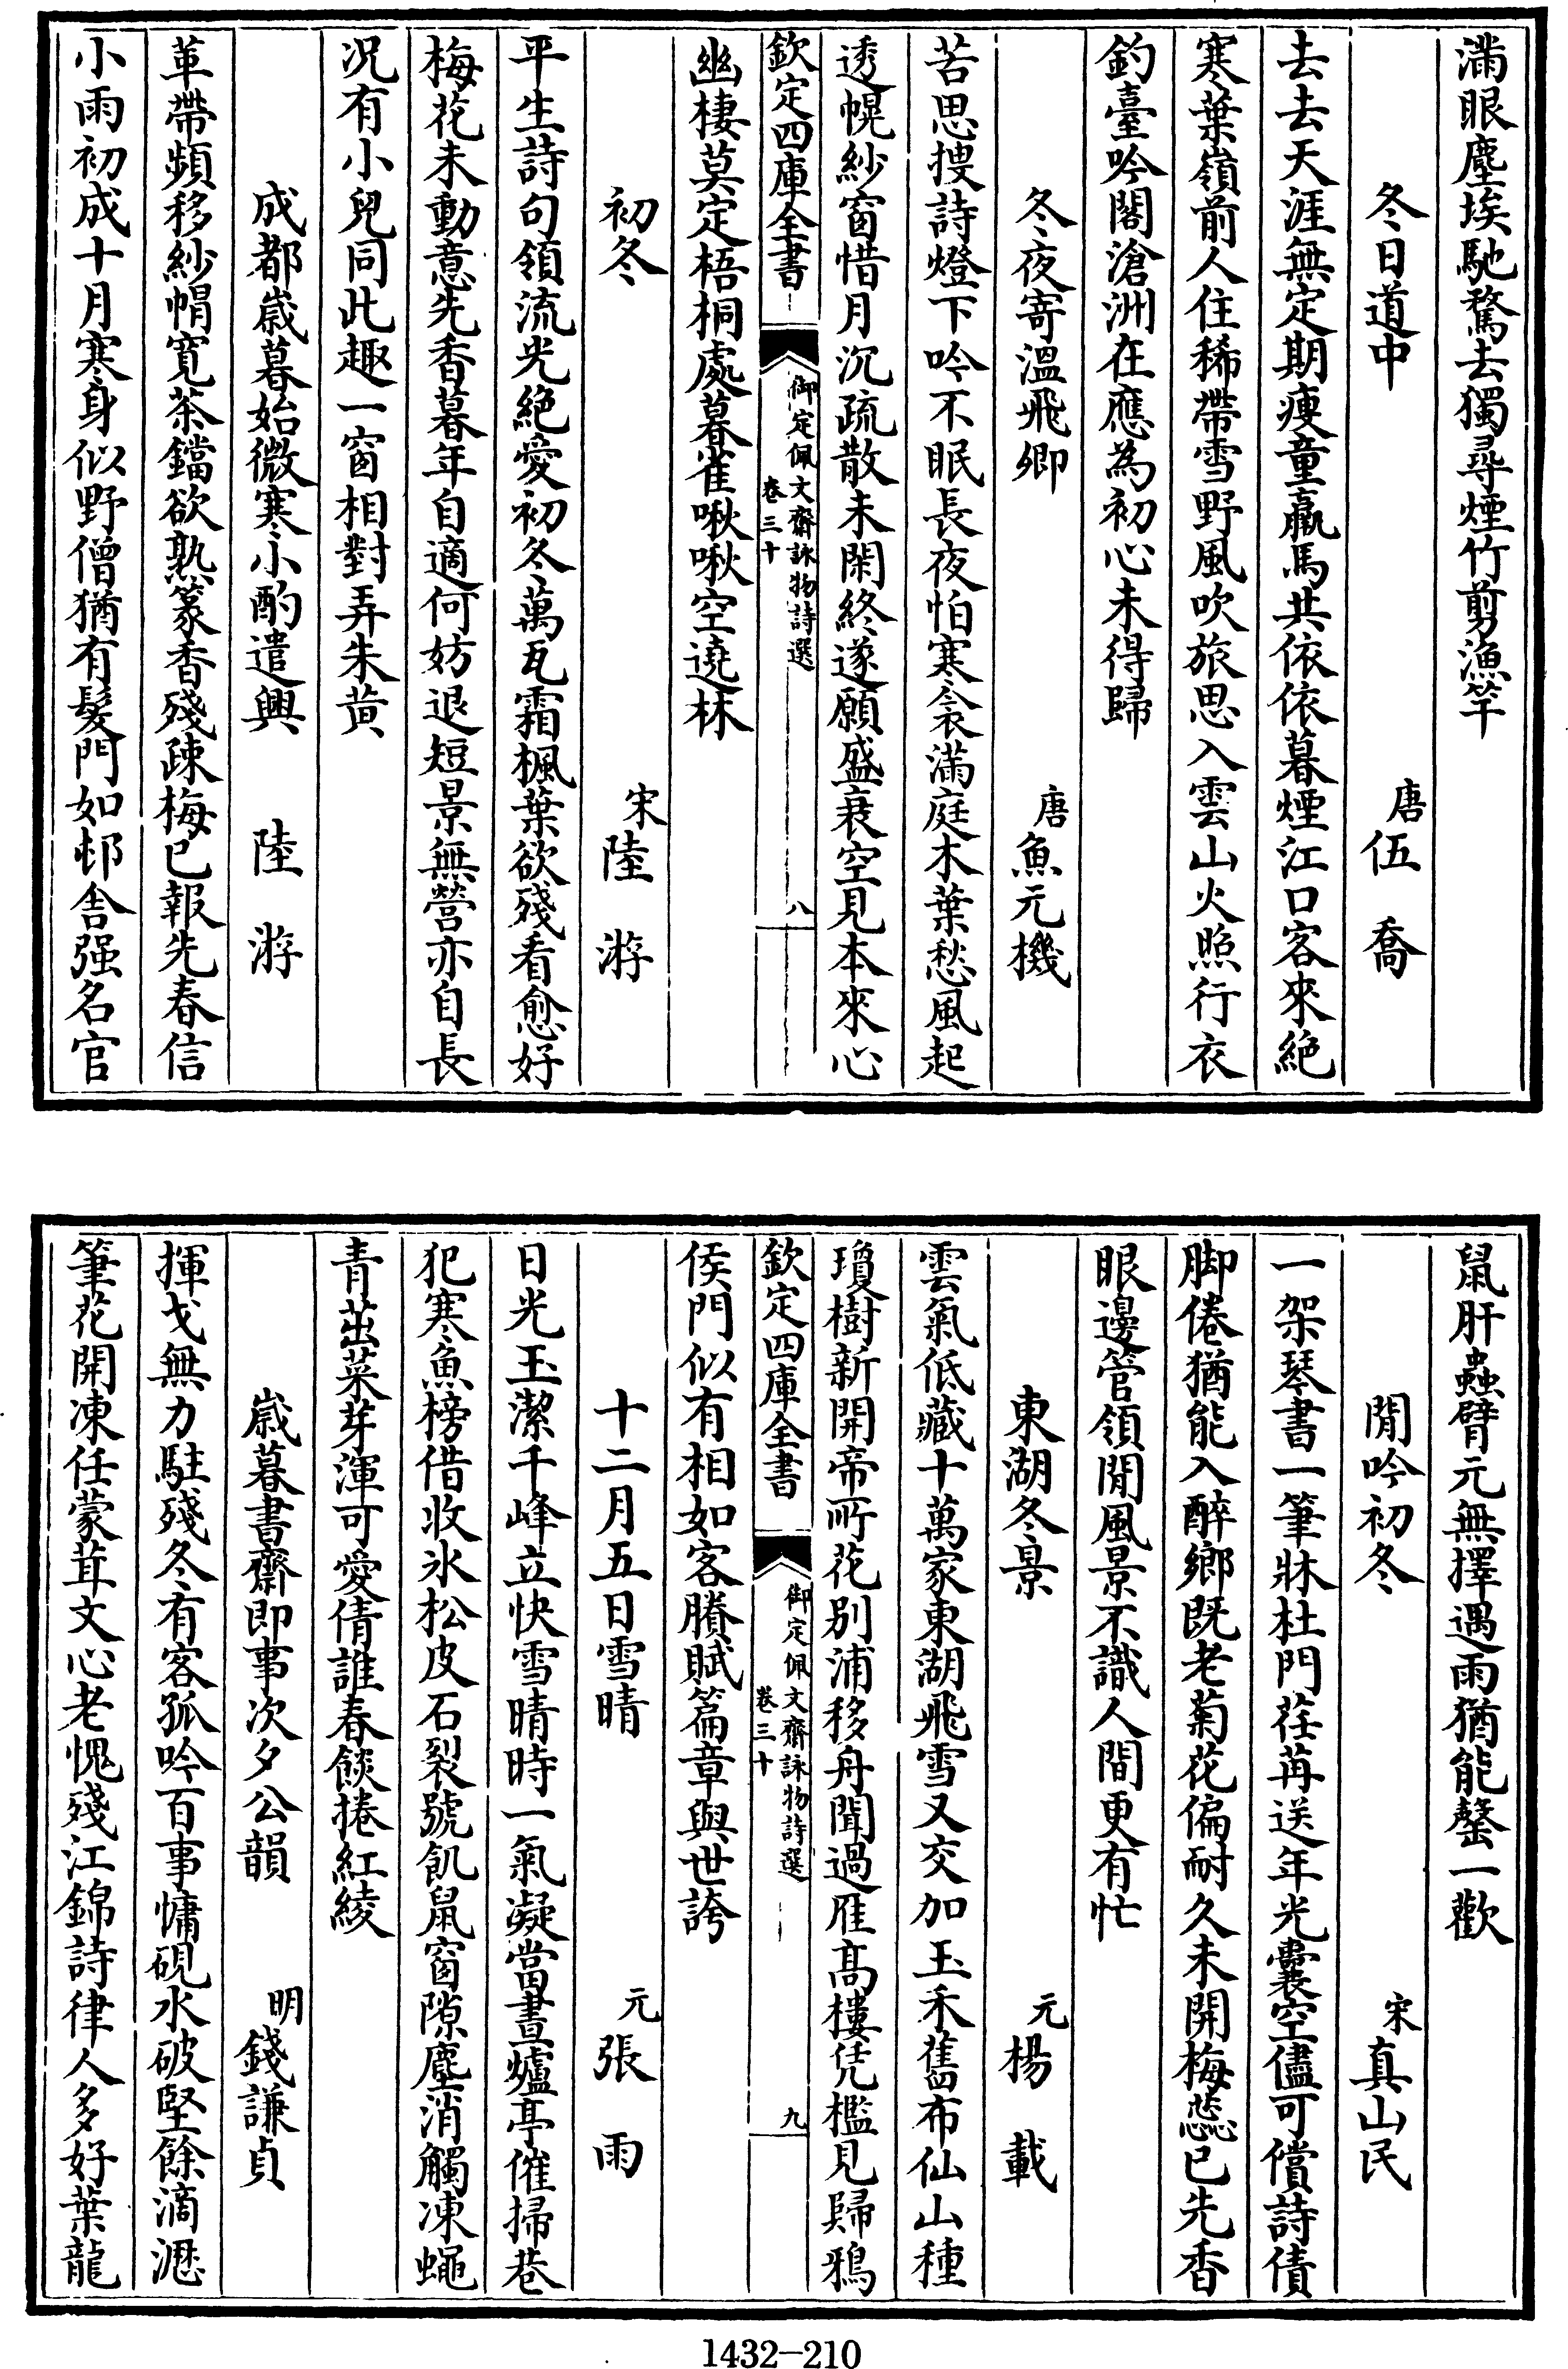 滿眼塵埃馳騖去獨尋煙竹剪漁竿
冬日道中 唐伍喬
去去天涯無定期瘦童羸馬共依依暮煙江口客來絶
寒葉嶺前人住稀帶雪野風吹旅思入雲山火照行衣
釣臺吟閣滄洲在應為初心未得歸
冬夜寄溫飛卿 唐魚元機
苦思搜詩燈下吟不眠長夜怕寒衾滿庭木葉愁風起
透幌紗窗惜月沉疏散未閑終遂願盛衰空見本來心
幽棲莫定梧桐處暮雀啾啾空遶林
欽定四庫全書 御定佩文齋詠物詩選 卷三十 八
初冬 宋陸游
平生詩句領流光絶愛初冬萬瓦霜楓葉欲殘看愈好
梅花未動意先香暮年自適何妨退短景無營亦自長
况有小兒同此趣一窗相對弄朱黄
成都歳暮始微寒小酌遣興 陸游
革帶頻移紗帽寛茶鐺欲熟篆香殘疎梅已報先春信
小雨初成十月寒身似野僧猶有髮門如邨舎强名官
鼠肝蟲臂元無擇遇雨猶能罄一歡
閒吟初冬 宋真山民
一架琴書一筆牀杜門荏苒送年光囊空儘可償詩債
脚倦猶能入醉鄉既老菊花偏耐久未開梅蕋已先香
眼邊管領閒風景不識人間更有忙
東湖冬景 元楊載
雲氣低藏十萬家東湖飛雪又交加玉禾舊布仙山種
瓊樹新開帝所花别浦移舟聞過雁髙樓凭檻見歸鴉
侯門似有相如客賸賦篇章與世誇
欽定四庫全書 御定佩文齋詠物詩選 卷三十 九
十二月五日雪晴 元張雨
日光玉潔千峰立快雪晴時一氣凝當晝爐亭催掃巷
犯寒魚榜借收氷松皮石裂號飢鼠窗隙塵消觸凍蠅
青茁菜芽渾可愛倩誰春餤捲紅綾
歳暮書齋即事次夕公韻 明錢謙貞
揮戈無力駐殘冬有客孤吟百事慵硯水破堅餘滴瀝
筆花開凍任蒙茸文心老愧殘江錦詩律人多好葉龍
1432-210